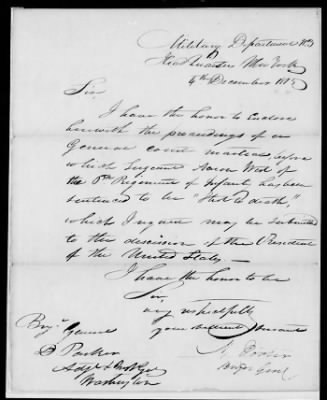 Military Department No 3
Head Quarters New York
4th December 1815
Sir
I have the honor to Enclose
herewith the proceedings of a
General court martial, before
which Sergeant Aaron West of
the 6th Regiment of Infantry has been
sentenced to be "Shot to death,"
which I request may be submitted
to the discission of the President
of the United States.—
I have the honor to be
Sir,
very respectfully
your obedient Servant
Brigr General
D Parker
Adjt & Inspr Genl
Washington